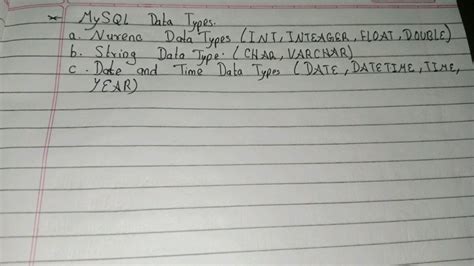 * MySQL Data Types:
a. Nurena Data Types (INT, INTEAGER, FLOAT, DOUBLE)
b. String Data Type: (CHAR, VARCHAR)
c. Date and Time Data Types (DATE, DATETIME, TIME,
YEAR)